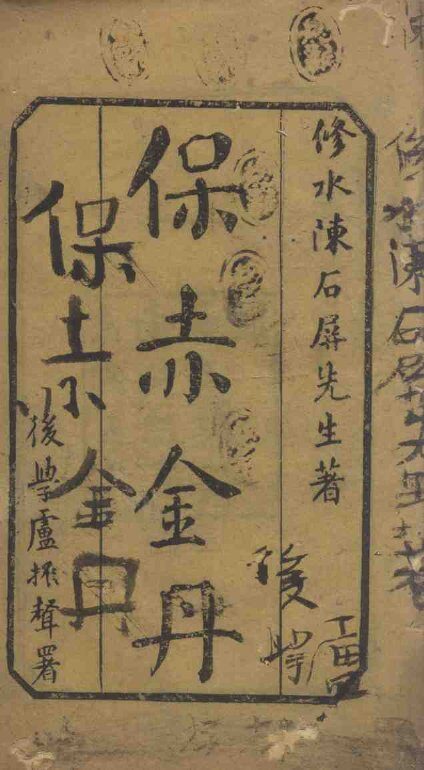 修水陳石屏先生著
修水陳石屏先生著
後學
保赤金丹
保赤金丹
後學盧振聲署